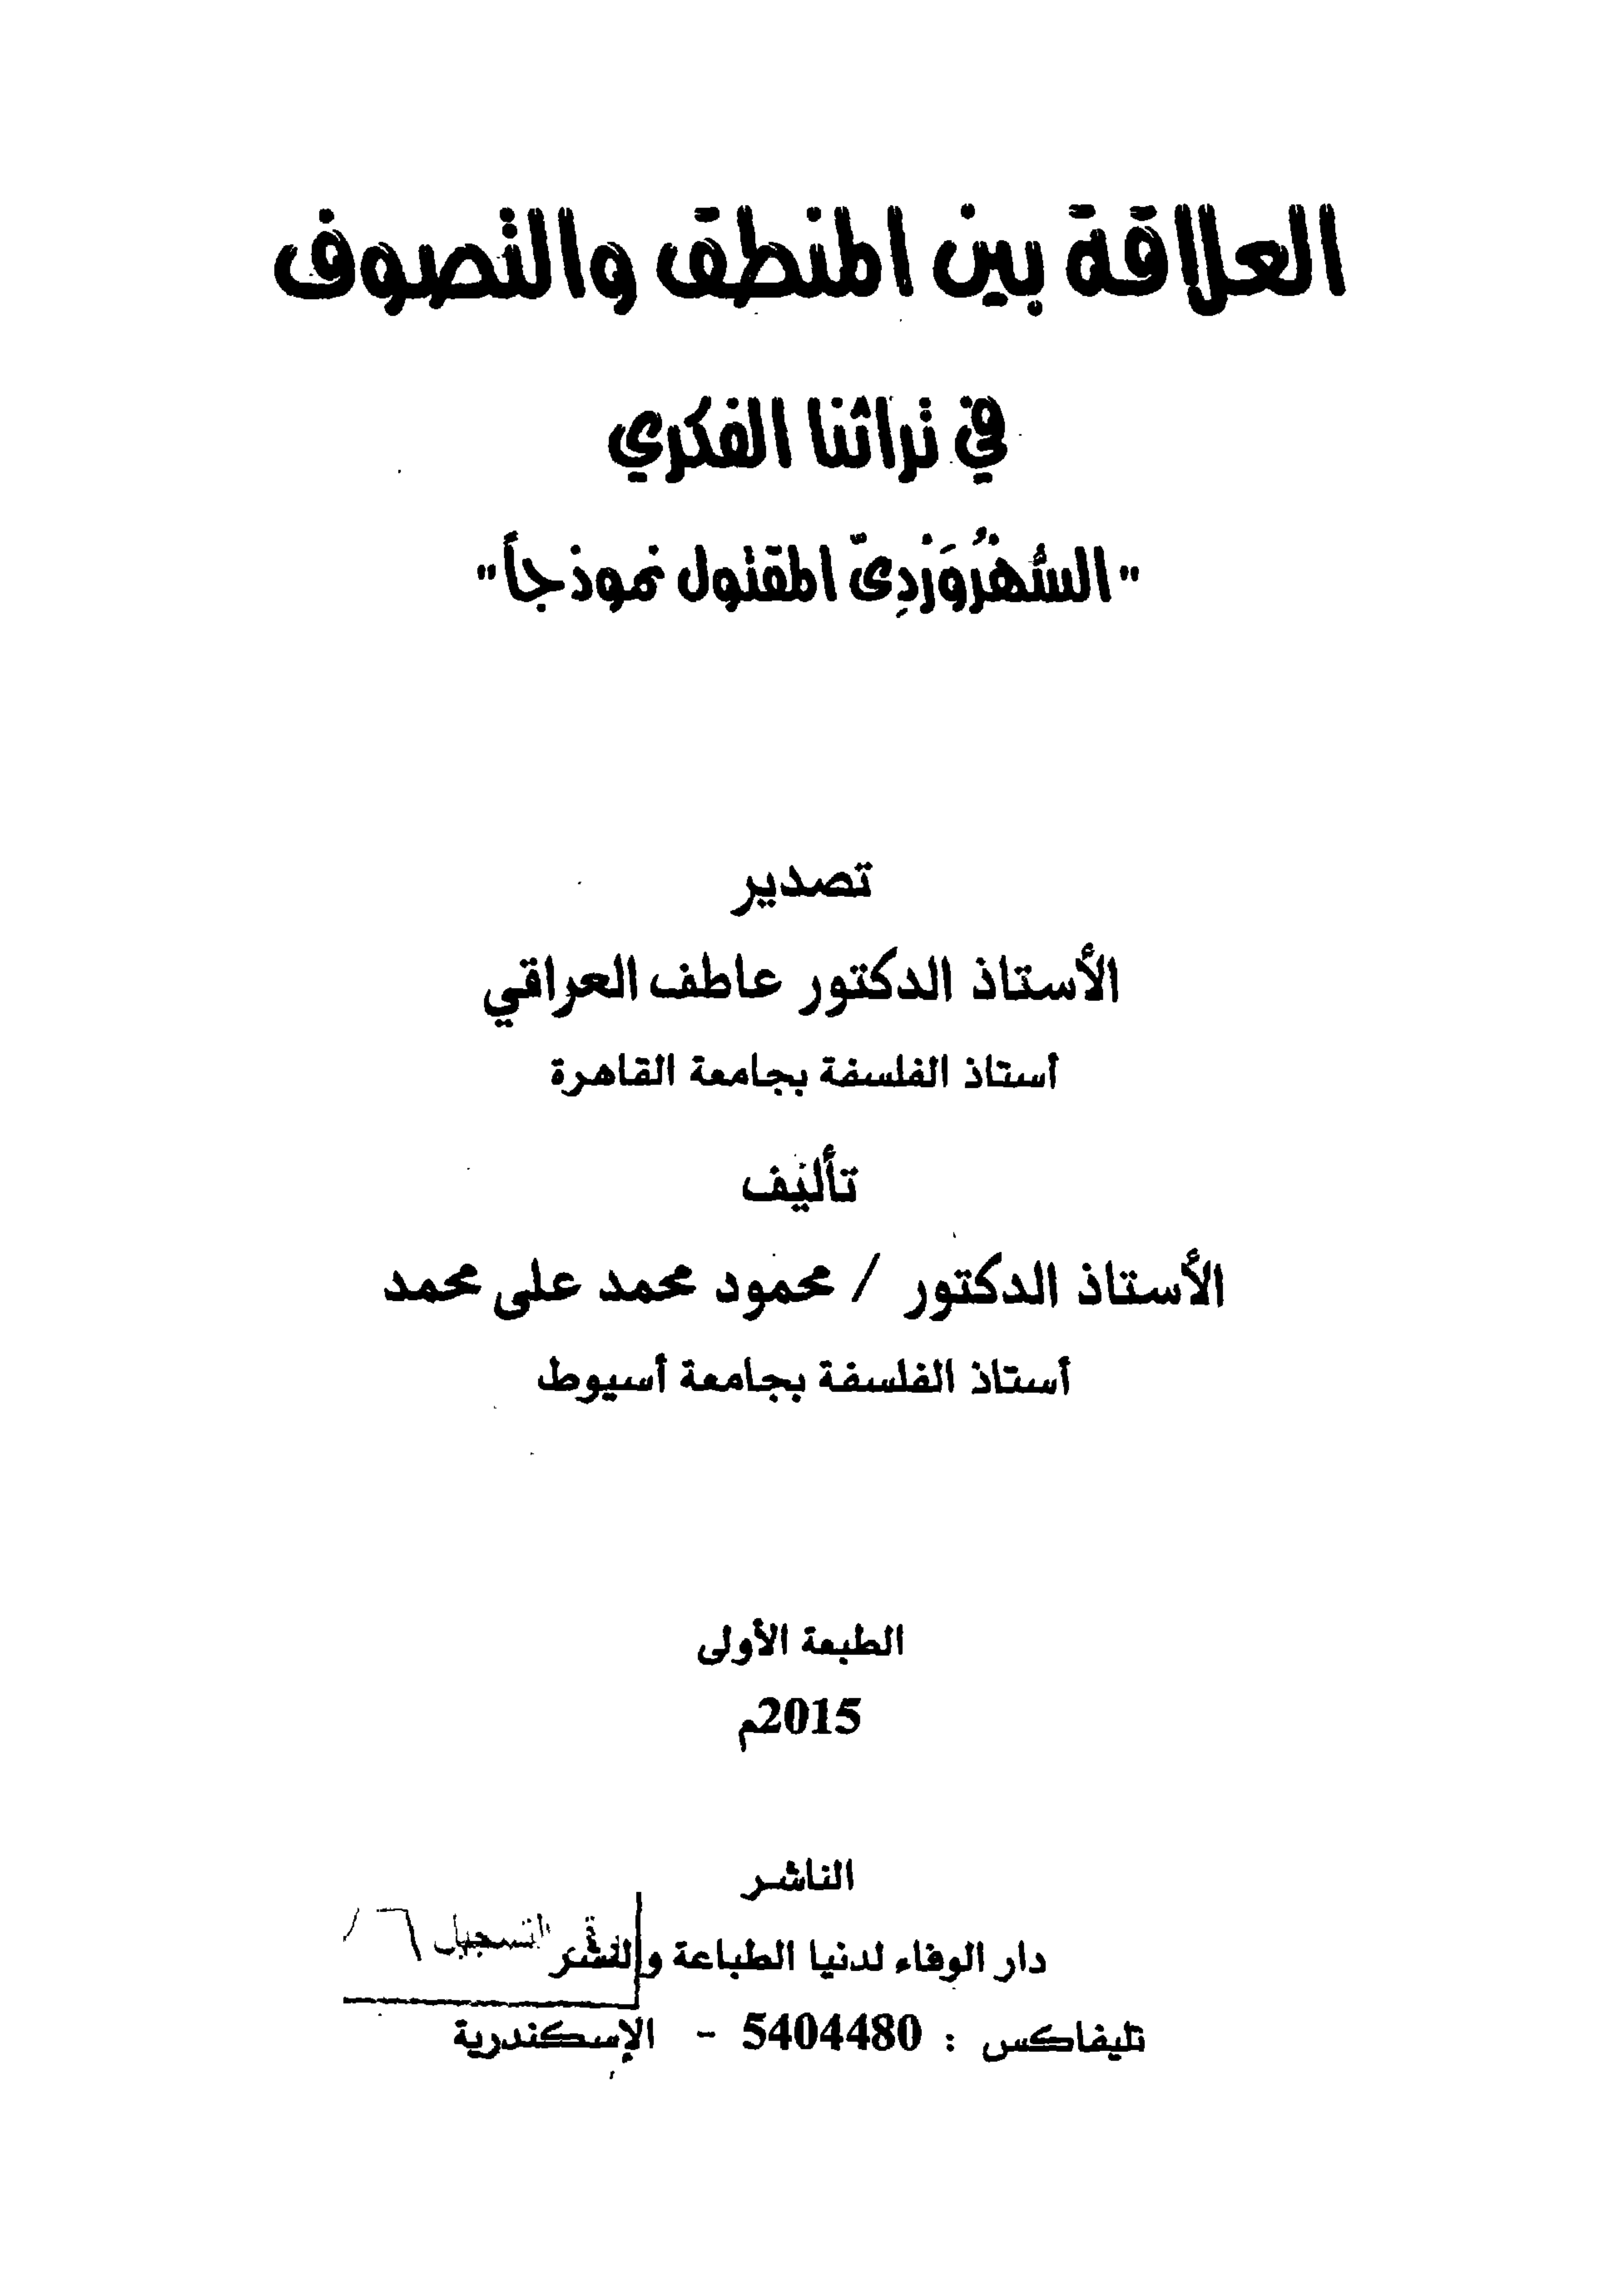 العلاقة بين المنطق والتصوف
في تراثنا الفكري
"السُّهْرُوَرْدِىّ المقتول نموذجاً"
تصدير
الأستاذ الدكتور عاطف العراقي
أستاذ الفلسفة بجامعة القاهرة
تأليف
الأستاذ الدكتور / محمود محمد على محمد
أستاذ الفلسفة بجامعة أسيوط
الطبعة الأولى
2015م
الناشر
دار الوفاء لدنيا الطباعة والنشر
التسجيل
تليفاكس : 5404480 - الإسكندرية